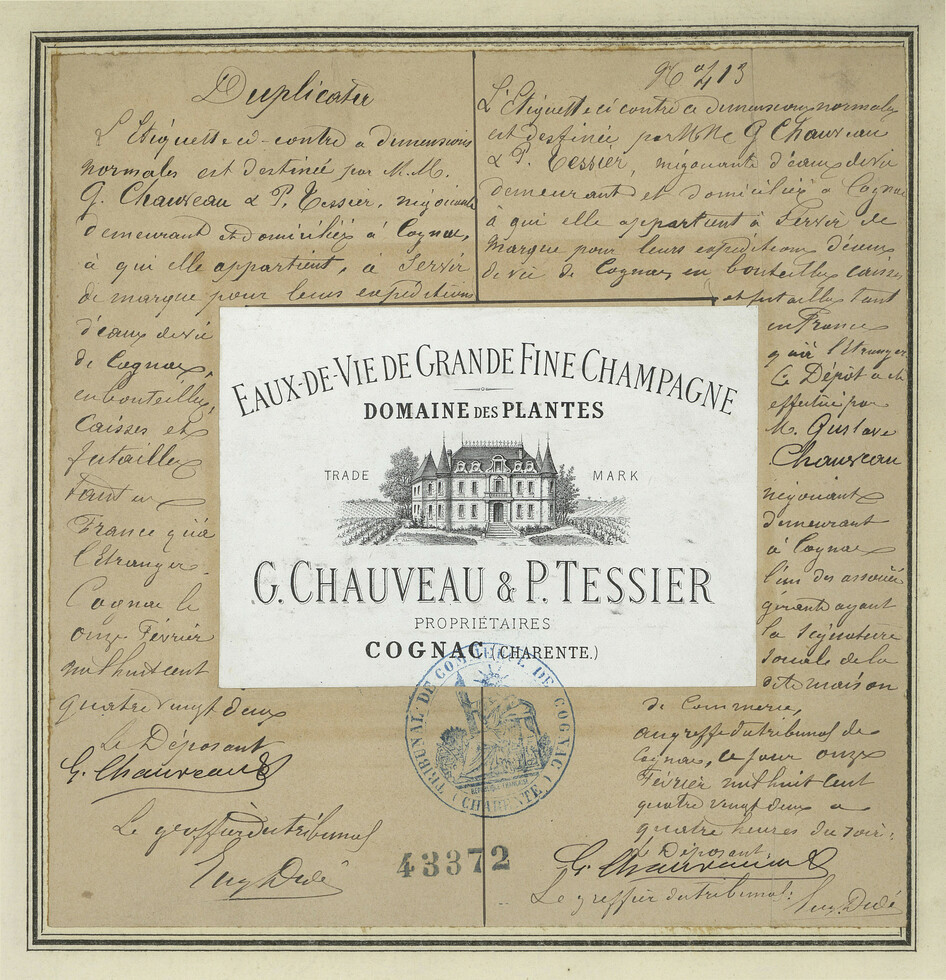 Duplicater
L'Etiquette ci-contre a dimensions
normales est destinée par M.M.
G. Chauveau & P. Tessier, négociants
demeurant et domiciliés à Cognac,
à qui elle appartient, à Servir
de marque pour leurs expéditions
d'eaux de vie
de Cognac,
en bouteilles,
Caisses et
futailles
tant en
France qu'à
l'Etranger.
Cognac le
onze Février
mil huit cent
quatre vingt deux
Le Déposant
G. Chauveau
Le greffier du tribunal
Eug. Didé
No 413
L'Etiquette ci contre a dimensions normales
est destinée par MM G Chauveau
& P. Tessier, négociants d'eaux de vie
demeurant et domiciliés à Cognac
à qui elle appartient à Servir de
Marque pour leurs expéditions d'eaux
de vie de Cognac en bouteilles caisses
et futailles tant
en France
qu'à l'Etranger
Ce Dépôt a été
effectué par
M. Gustave
Chauveau
négociant
demeurant
à Cognac
l'un des associés
gérants ayant
la Signature
sociale de la
dite maison
de Commerce,
au greffe du tribunal de
Cognac, ce jour onze
Février mil huit cent
quatre vingt deux a
quatre heures du soir.
Le Déposant
G. Chauveau
Le greffier du tribunal:
Eug. Didé
EAUX-DE-VIE DE GRANDE FINE CHAMPAGNE
DOMAINE DES PLANTES
TRADE MARK
G. CHAUVEAU & P. TESSIER
PROPRIÉTAIRES
COGNAC (CHARENTE.)
TRIBUNAL DE COMMERCE DE COGNAC
(CHARENTE)
43372